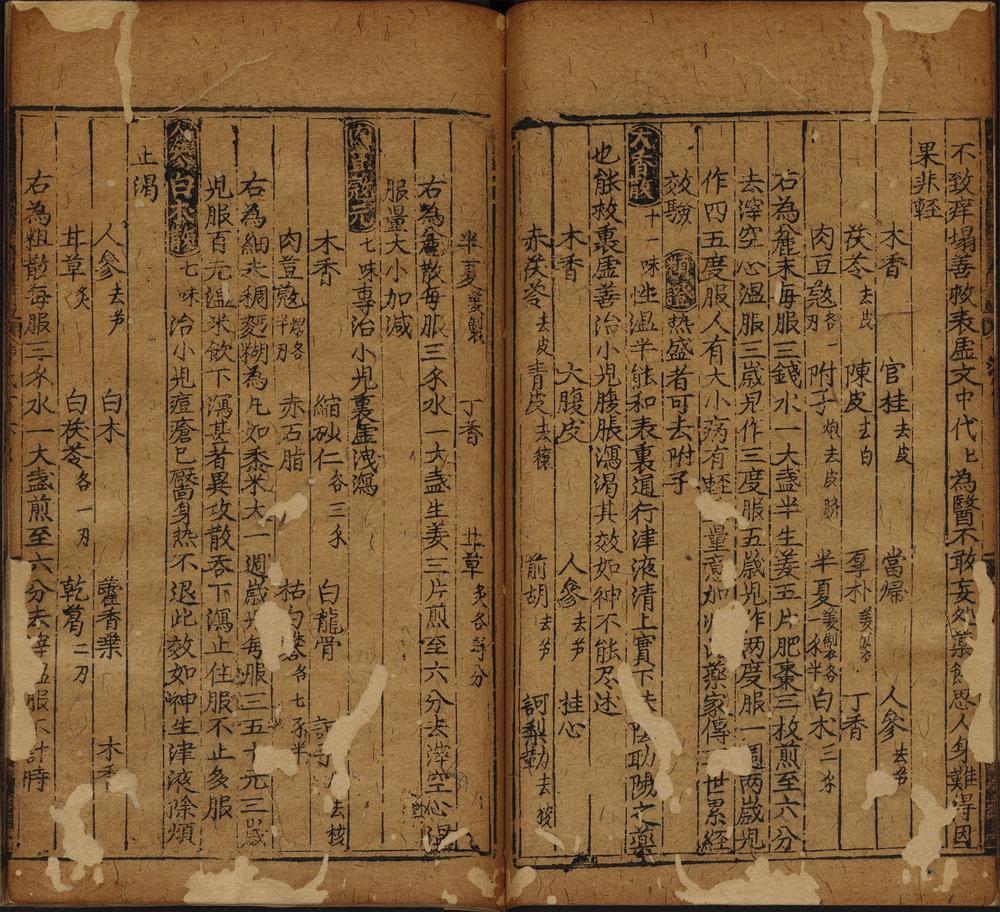 不致痒塌善救表虛文中代〻為醫不敢妄処藥飮思人身難得因
果非輕
木香 官桂去皮 當帰 人參去芦
茯苓去皮 陳皮去白 厚朴姜製 丁香
肉豆䓻各一刃 附子炮去皮臍 半夏姜製各一禾半 白朮三禾
右為麄末每服三錢水一大盞半生姜五片肥棗三枚煎至六分
去滓空心溫服三歲児作三度服五歲児作两度服一週两歲児
作四五度服人有大小疡有輕 量意加 藥家傳 世累経
效驗 熱盛者可去附子
木香散 十一味 性温平能和表裏通行津液清上實下 助陽之藥
也能救裏虛善治小児腹脹瀉渴其效如神不能尽述
木香 大腹皮 人參去芦 桂心
赤茯苓去皮 青皮去穰 前胡去芦 訶梨勒去核
半夏姜製 丁香 甘草炙各等分
右為麄散每服三禾水一大盞生姜三片煎至六分去滓空心温
服量大小加减
肉豆䓻元 七味 專治小児裏虛洩瀉
木香 縮砂仁各三禾 白龍骨 訶子 去核
肉荳䓻煨各半刃 赤石脂 枯白礬各七禾半
右為細末稠麪糊為凡如黍米大一週歲児每服三五十元三歲
児服百元温米飲下瀉甚者異攻散吞下瀉止住服不止多服
白朮散 七味 治小児痘瘡已靨身热不退此效如神生津液除煩
止渴
人參去芦 白朮 藿香葉 木香
甘草炙 白茯苓各一刃 乾葛二刃
右為粗散每服三禾水一大盞煎至六分去滓 服不計時